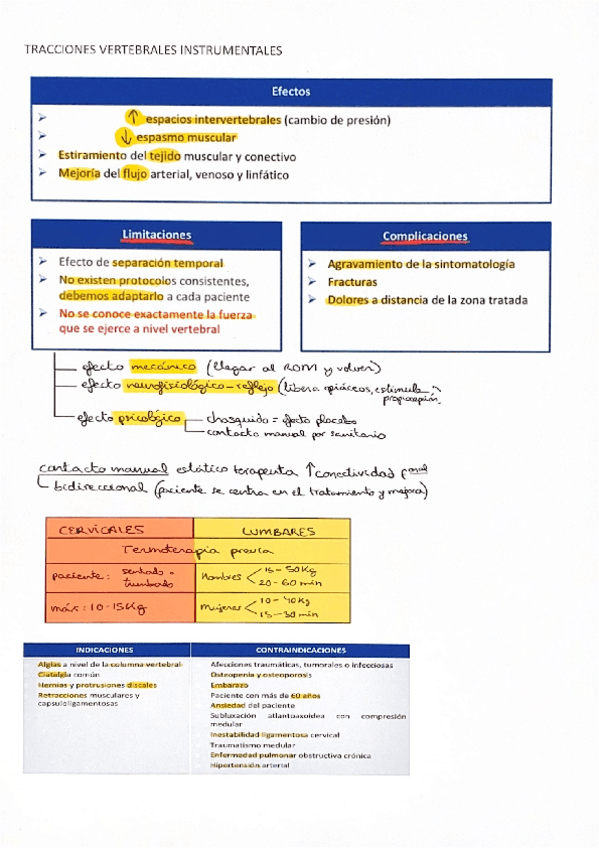 TRACCIONES VERTEBRALES INSTRUMENTALES
Efectos
➢ ↑ espacios intervertebrales (cambio de presión)
➢ ↓ espasmo muscular
➢ Estiramiento del tejido muscular y conectivo
➢ Mejoría del flujo arterial, venoso y linfático
Limitaciones
➢ Efecto de separación temporal
➢ No existen protocolos consistentes,
debemos adaptarlo a cada paciente
➢ No se conoce exactamente la fuerza
que se ejerce a nivel vertebral
Complicaciones
➢ Agravamiento de la sintomatología
➢ Fracturas
➢ Dolores a distancia de la zona tratada
efecto mecánico (llegar al ROM y volver)
efecto neurofisiológico-reflejo (libera opiáceos, estimula
propiocepción)
efecto psicológico
chasquido = efecto placebo
contacto manual por sanitario
contacto manual estático terapeuta ↑ conectividad
bidireccional (paciente se centra en el tratamiento y mejora)
CERVICALES
LUMBARES
Termoterapia previa
paciente: sentado o
tumbado
Hombres < 15-50Kg
20-60 min
máx: 10-15Kg
Mujeres < 10-40Kg
15-30 min
INDICACIONES
Algias a nivel de la columna vertebral
Ciatalgia común
Hernias y protrusiones discales
Retracciones musculares y
capsuloligamentosas
CONTRAINDICACIONES
Afecciones traumáticas, tumorales o infecciosas
Osteopenia y osteoporosis
Embarazo
Paciente con más de 60 años
Ansiedad del paciente
Subluxación atlantoaxoidea con compresión
medular
Inestabilidad ligamentosa cervical
Traumatismo medular
Enfermedad pulmonar obstructiva crónica
Hipertensión arterial